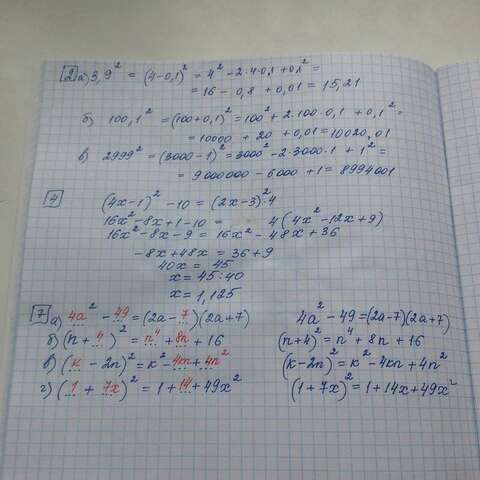 2 а) 3,9² = (4-0,1)² = 4² - 2·4·0,1 + 0,1² =
= 16 - 0,8 + 0,01 = 15,21
б) 100,1² = (100+0,1)² = 100² + 2·100·0,1 + 0,1² =
= 10000 + 20 + 0,01 = 10020,01
в) 2999² = (3000-1)² = 3000² - 2·3000·1 + 1² =
= 9000000 - 6000 + 1 = 8994001
4 (4x-1)² - 10 = (2x-3)²·4
16x² - 8x + 1 - 10 = 4(4x² - 12x + 9)
16x² - 8x - 9 = 16x² - 48x + 36
-8x + 48x = 36 + 9
40x = 45
x = 45:40
x = 1,125
7 а) 4a² - 49 = (2a - 7)(2a+7) 4a² - 49 = (2a-7)(2a+7)
б) (n + 4)² = n⁴ + 8n + 16 (n+4)² = n⁴ + 8n + 16
в) (к - 2n)² = к² - 4кn + 4n² (к-2n)² = к² - 4кn + 4n²
г) (1 + 7x)² = 1 + 14 + 49x² (1+7x)² = 1 + 14x + 49x²